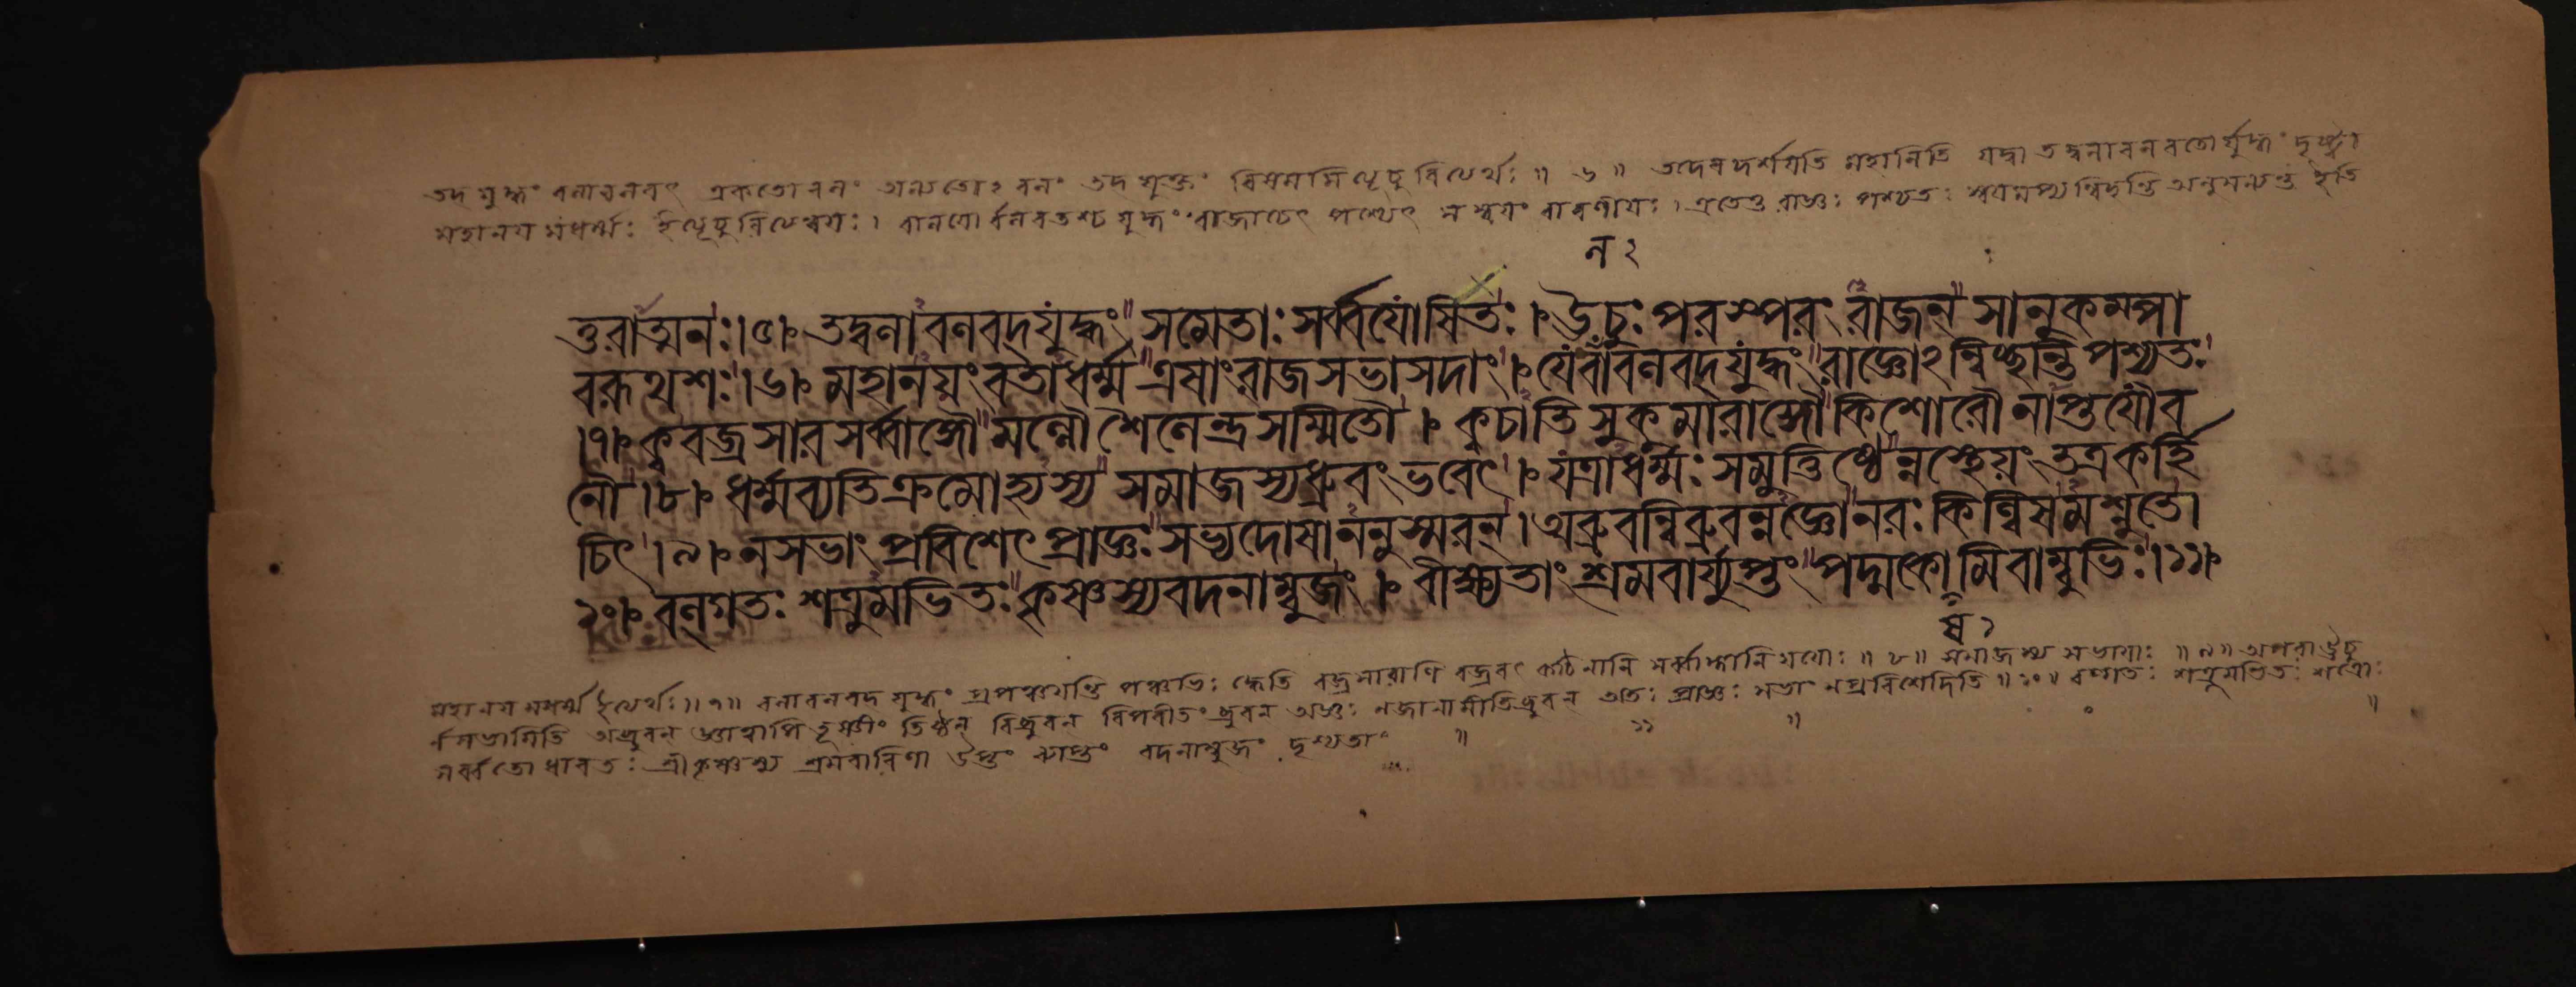 তদযুদ্ধং বলাবলবৎ একতোবলং অন্যতোঽবলং তদযুক্তং বিষমমিত্যূচুরিত্যর্থঃ ॥ ৬ ॥ তদেবদর্শযতি মহানিতি যদ্বা তদ্বলাবলবতোর্যুদ্ধং দৃষ্ট্বা
মহানযমধর্ম্মঃ ইত্যূচুরিত্যন্বযঃ । রাজাচেৎ পশ্যেৎ রাজ্ঞঃ পশ্যতঃ ইতি
ন ২
ত্তরাত্মনঃ।৫। তদ্বলাবলবদ্যুদ্ধং সমেতাঃ সর্ব্বযোষিতঃ । ঊচুঃ পরস্পরং রাজন্ সানুকমল্পা
বরূথশঃ।৬। মহানয়ং বতাধর্ম্ম এষাং রাজসভাসদাং । যে বলাবলবদ্যুদ্ধং রাজ্ঞোঽন্বিচ্ছন্তি পশ্যতঃ
।৭। ক্ববজ্রসারসর্ব্বাঙ্গৌ মল্লৌ শৈলেন্দ্রসম্মিতৌ । ক্বচাতিসুকমারাঙ্গৌ কিশোরৌ নাপ্তযৌব
নৌ ।৮। ধর্ম্মব্যতিক্রমোহ্যস্য সমাজস্য ধ্রুবং ভবেৎ । যত্রাধর্ম্মঃ সমুত্তিষ্ঠেন্নস্থেয়ং তত্রকর্হি
চিৎ ।৯। নসভাং প্রবিশেৎ প্রাজ্ঞঃ সভ্যদোষাননুস্মরন্ । অব্রুবন্বিব্রুবন্নজ্ঞো নরঃ কিল্বিষমশ্নুতে।
১০। বল্গতঃ শত্রুমভিতঃ কৃষ্ণস্যবদনাম্বুজং । বীক্ষ্যতাং শ্রমবার্য্যুপ্তং পদ্মকোমিবাম্বুভিঃ।১১।
ষ ১
মহানযমধর্ম্ম ইত্যর্থঃ॥ ৭॥ বলাবলবদ্যুদ্ধং প্রপঞ্চযন্তি পঞ্চভিঃ ক্বেতি বজ্রসারাণি বজ্রবৎ কঠিনানি সর্ব্বাঙ্গানি যযোঃ ॥ ৮॥ সমাজস্য সভাযাঃ ॥ ৯॥ অপরাঊচু
র্নসভামিতি অব্রুবন্ জ্ঞাত্বাপি তূষ্ণীং তিষ্ঠন্ বিব্রুবন্ বিপরীতং ব্রুবন্ অজ্ঞঃ নজানামীতিব্রুবন্ অতঃ প্রাজ্ঞঃ সভাং নপ্রবিশেদিতি ॥ ১০॥ বল্গতঃ শত্রুমভিতঃ শত্রোঃ
সর্ব্বতো ধাবতঃ শ্রীকৃষ্ণস্য শ্রমবারিণা উপ্তং ব্যাপ্তং বদনাম্বুজং দৃশ্যতাং ॥ ১১ ॥